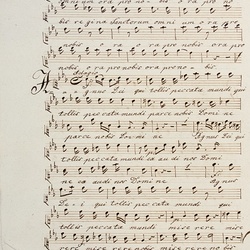 bis regina Sanctorum omnium ora pro
nobis ora ora pro nobis ora pro
nobis, ora pro nobis ora pro no- bis
Adagio
Agnus Dei qui tollis peccata mundi qui
tollis peccata mundi parce nobis Domine
parce nobis Domine Agnus Dei qui
tollis peccata mundi exaudi nos Domi
ne exaudi nos Domine Agnus
De- i qui tollis peccata mundi qui
tollis peccata mundi miserere
rere miserere miserere no bis